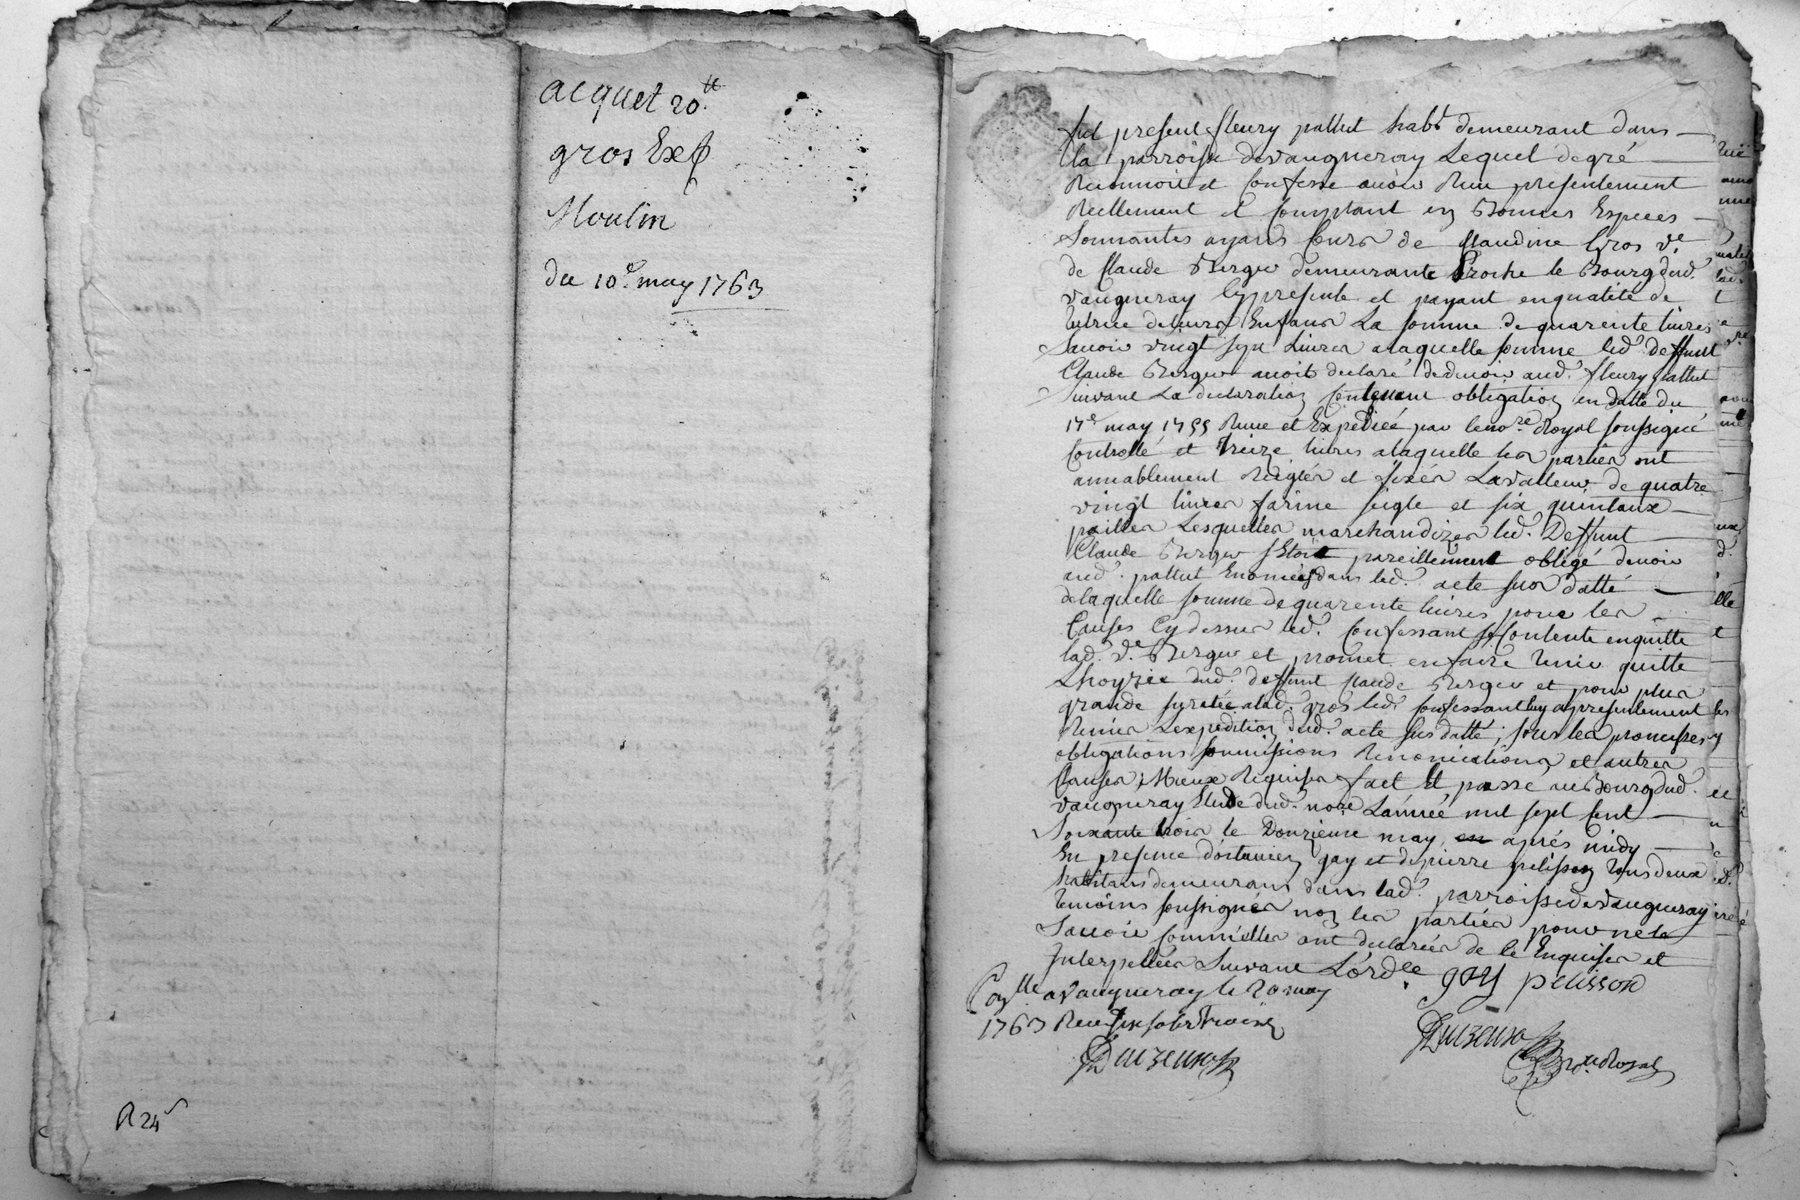 acquet 20.tt
gros Exp
Moulin
du 10.e may 1763
R 24 s
fut present fleury pattut habt. demeurant dans
la parroisse de vaugneray Lequel de gré
Reconnoit et Confesse avoir Reçu presentement
Reellement et Comptant en Bonnes Especes
Sonnantes ayans Cours de Claudine Gros ve.
de Claude Berger demeurante Proche le Bourg dud.
vaugneray Cy presente et payant en qualité de
tutrice de leurs Enfans La somme de quarente livres
Savoir vingt sept Livres a laquelle somme led. Deffunt
Claude Berger avoit declaré de devoir aud. fleury pattut
Suivant La declaration Contenant obligation en datte du
17e may 1755 Reçue et Expediée par le nore. Royal soussigné
Controllé et treize livres a laquelle les parties ont
amiablement Reiglés et fixés La valleur de quatre
vingt livres farine seigle et six quintaux
pailles Lesquelles marchandizes led. Deffunt
Claude Berger s'Etoit pareillement obligé devoir
aud. pattut dans led. acte sus datté
de laquelle somme de quarente livres pour les
Causes Cy dessus led. Confessant se Contente en quitte
lad. ve. Berger et promet en faire tenir quitte
L'hoyrie dud. deffunt Claude Berger et pour plus
grande sureté a lad. gros led. confessant luy a presentement
Remis L'expedition dud. acte sus datté; sous les promesses
obligations soumissions Renonciations et autres
Clauses; Mieux Requises fait et passé au Bourg dud.
vaugneray Etude dud. nore. L'année mil sept Cent
Soixante trois le Douzieme may, après midy
En presence d'ostanien gay et de pierre pelisson tous deux
habitans demeurans dans lad. parroisse de vaugneray
temoins soussignés non les parties pour ne le
Savoir comm'elles ont declarées de le Enquises et
Interpellées Suivant L'ordce. gay pelisson
Conlle. a vaugneray le 20 may
1763 Reçu six sols